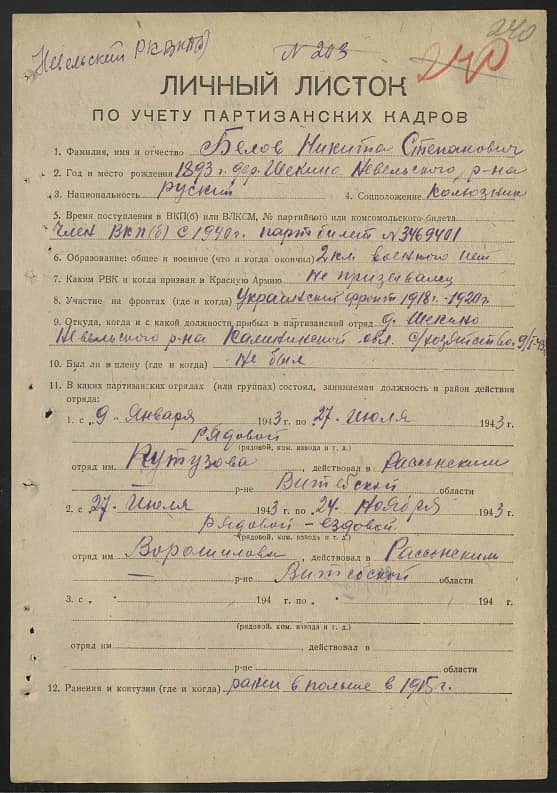 240
Невельский РКВКП(б) N 203 240
ЛИЧНЫЙ ЛИСТОК
ПО УЧЕТУ ПАРТИЗАНСКИХ КАДРОВ
1. Фамилия, имя и отчество Белов Никита Степанович
2. Год и место рождения 1893 г. дер. Шекино Невельского р-на
3. Национальность руский 4. Соцположение Колхозник
5. Время поступления в ВКП(б) или ВЛКСМ, № партийного или комсомольского билета
Член ВКП(б) с 1940г. партбилет N 3469401
6. Образование: общее и военное (что и когда окончил) 2 кл. военного нет
7. Каким РВК и когда призван в Красную Армию не призывалец
8. Участие на фронтах (где и когда) Украинский фронт 1918г.-1920г
9. Откуда, когда и с какой должности прибыл в партизанский отряд д. Шекино
Невельского р-на Калининской обл. с/хозяйство. 9/I-43г
10. Был ли в плену (где и когда) не был
11. В каких партизанских отрядах (или группах) состоял, занимаемая должность и район действия
отряда:
1. с „9" Января 1943 г. по „27" Июля 1943 г.
рядовой
(рядовой, ком. взвода и т. д.)
отряд им Кутузова, действовал в Рассонским
р-не Витебской области
2. с „27" Июля 1943 г. по „24" Ноября 1943 г
рядовой - ездовой
(рядовой, ком. взвода и т. д.)
отряд им Ворошилова, действовал в Рассонским
р-не Витебской области
3. с „ " 194 г. по „ " 194 г.
(рядовой, ком. взвода и т. д.)
отряд им, действовал в
р-не области
12. Ранения и контузии (где и когда) ранен в польше в 1915г.